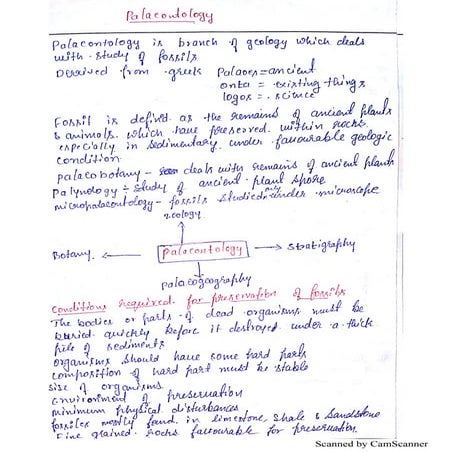 Palaeontology
Palaeontology is branch of geology which deals
with study of fossils
Derived from greek Palaoes = ancient
onta = existing things
logos = science
Fossil is defined as the remains of ancient plants
& animals which have preserved within rocks
especially in sedimentary under favourable geologic
condition.
palaeobotany - deals with remains of ancient plants
Palynology ÷ study of ancient plant spore
micropalaeontology - fossils studied only under microscope
zoology
Botany Palaeontology Stratigraphy
palaeogeography
Conditions required for preservation of fossils
The bodies or parts of dead organisms must be
buried quickly before it destroyed under a thick
pile of sediments
organisms should have some hard parts
composition of hard part must be stable
size of organisms
environment of preservation
minimum physical disturbances
fossiles mostly found in limestone, shale & sandstone
Fine grained rocks favourable for preservation
Scanned by CamScanner